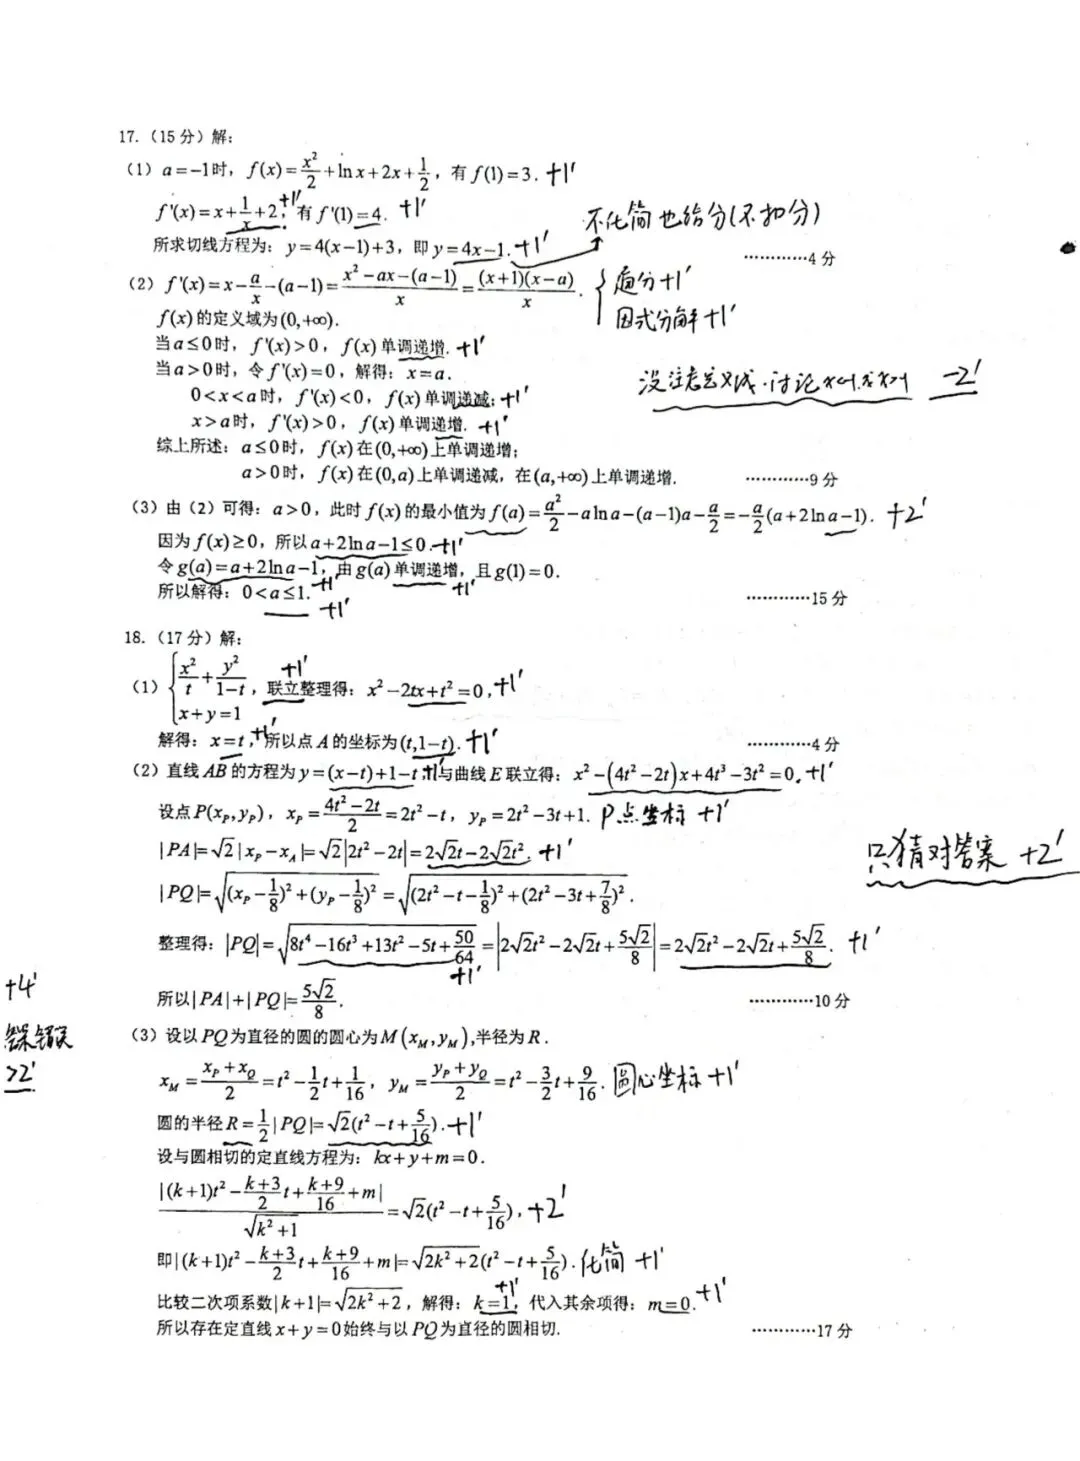 17.（15分）解：
（1）a=-1时，f(x)=x²/2+ln x+2x+1/2，有f(1)=3. +1′
f′(x)=x+1/x+2，+1′有f′(1)=4. +1′
不化简也给分(不扣分)
所求切线方程为：y=4(x-1)+3，即y=4x-1. +1′
…………4分
（2）f′(x)=x-a/x-(a-1)=(x²-ax-(a-1))/x=(x+1)(x-a)/x. { 通分+1′
因式分解+1′
f(x)的定义域为(0,+∞).
当a≤0时，f′(x)>0，f(x)单调递增. +1′
当a>0时，令f′(x)=0，解得：x=a.
没注意定义域，讨论 -2′
0<x<a时，f′(x)<0，f(x)单调递减；+1′
x>a时，f′(x)>0，f(x)单调递增. +1′
综上所述：a≤0时，f(x)在(0,+∞)上单调递增；
a>0时，f(x)在(0,a)上单调递减，在(a,+∞)上单调递增. …………9分
（3）由（2）可得：a>0，此时f(x)的最小值为f(a)=a²/2-aln a-(a-1)a-a/2=-a/2(a+2ln a-1). +2′
因为f(x)≥0，所以a+2ln a-1≤0. +1′
令g(a)=a+2ln a-1，+1′由g(a)单调递增，+1′且g(1)=0.
所以解得：0<a≤1. +1′
…………15分
18.（17分）解：
（1）{x²/t+y²/(1-t)，x+y=1 +1′联立整理得：x²-2tx+t²=0，+1′
解得：x=t，+1′所以点A的坐标为(t,1-t). +1′ …………4分
（2）直线AB的方程为y=(x-t)+1-t，+1′与曲线E联立得：x²-(4t²-2t)x+4t³-3t²=0. +1′
设点P(x_P,y_P)，x_P=(4t²-2t)/2=2t²-t，y_P=2t²-3t+1. P点坐标 +1′
|PA|=√2|x_P-x_A|=√2|2t²-2t|=2√2t-2√2t². +1′
只猜对答案 +2′
|PQ|=√((x_P-1/8)²+(y_P-1/8)²)=√((2t²-t-1/8)²+(2t²-3t+7/8)².
整理得：|PQ|=√(8t⁴-16t³+13t²-5t+50/64)=|2√2t²-2√2t+5√2/8|=2√2t²-2√2t+5√2/8. +1′
+1′
所以|PA|+|PQ|=5√2/8. …………10分
+4′
>2′
（3）设以PQ为直径的圆的圆心为M(x_M,y_M),半径为R.
x_M=(x_P+x_Q)/2=t²-1/2t+1/16，y_M=(y_P+y_Q)/2=t²-3/2t+9/16. 圆心坐标 +1′
圆的半径R=1/2|PQ|=√2(t²-t+5/16). +1′
设与圆相切的定直线方程为：kx+y+m=0.
|(k+1)t²-(k+3)/2t+(k+9)/16+m|/√(k²+1)=√2(t²-t+5/16)，+2′
即|(k+1)t²-(k+3)/2t+(k+9)/16+m|=√(2k²+2)(t²-t+5/16). 化简 +1′
比较二次项系数|k+1|=√(2k²+2)，解得：k=1，+1′代入其余项得：m=0. +1′
所以存在定直线x+y=0始终与以PQ为直径的圆相切. …………17分